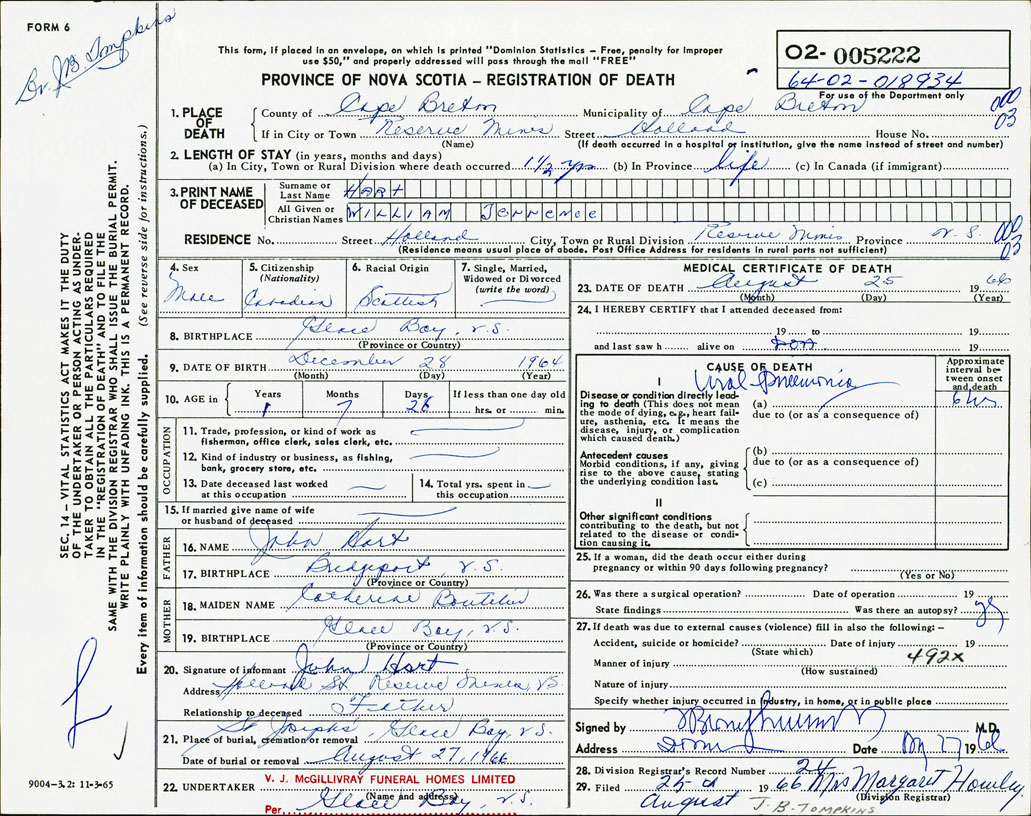 FORM 6
Dr. J.B. Tompkins
This form, if placed in an envelope, on which is printed "Dominion Statistics – Free, penalty for improper
use $50," and properly addressed will pass through the mail "FREE"
PROVINCE OF NOVA SCOTIA – REGISTRATION OF DEATH
02- 005222
64-02-018934
For use of the Department only
1. PLACE OF DEATH
County of Cape Breton Municipality of Cape Breton 000 03
If in City or Town Reserve Mines Street Holland House No.
(Name) (If death occurred in a hospital or institution, give the name instead of street and number)
2. LENGTH OF STAY (in years, months and days)
(a) In City, Town or Rural Division where death occurred 1 1/2 yrs (b) In Province life (c) In Canada (if immigrant)
3. PRINT NAME OF DECEASED
Surname or Last Name HART
All Given or Christian Names WILLIAM
RESIDENCE No. Street Holland City, Town or Rural Division Reserve Mines Province N.S. 000 03
(Residence means usual place of abode. Post Office Address for residents in rural parts not sufficient)
4. Sex Male
5. Citizenship (Nationality) Canadian
6. Racial Origin Scottish
7. Single, Married, Widowed or Divorced (write the word)
8. BIRTHPLACE Glace Bay, N.S.
(Province or Country)
9. DATE OF BIRTH December 28 1964
(Month) (Day) (Year)
10. AGE in Years 1 Months 7 Days 26 If less than one day old hrs. or min.
OCCUPATION
11. Trade, profession, or kind of work as
fisherman, office clerk, sales clerk, etc.
12. Kind of industry or business, as fishing,
bank, grocery store, etc.
13. Date deceased last worked
at this occupation
14. Total yrs. spent in
this occupation
15. If married give name of wife
or husband of deceased
FATHER
16. NAME John Hart
17. BIRTHPLACE Bridgeport, N.S.
(Province or Country)
MOTHER
18. MAIDEN NAME Catherine Boutilier
19. BIRTHPLACE Glace Bay, N.S.
(Province or Country)
20. Signature of informant John Hart
Address Holland St. Reserve Mines,
Relationship to deceased Father
21. Place of burial, cremation or removal St. Josephs, Glace Bay, N.S.
Date of burial or removal August 27, 1966
22. UNDERTAKER V. J. McGILLIVRAY FUNERAL HOMES LIMITED
(Name and address)
Per Glace Bay, N.S.
MEDICAL CERTIFICATE OF DEATH
23. DATE OF DEATH August 25 1966
(Month) (Day) (Year)
24. I HEREBY CERTIFY that I attended deceased from:
19 to 19
and last saw h alive on 19
CAUSE OF DEATH
Approximate interval between onset and death
I
Disease or condition directly leading to death (This does not mean the mode of dying, e.g., heart failure, asthenia, etc. It means the disease, injury, or complication which caused death.)
(a) Viral Pneumonia 6 hrs
due to (or as a consequence of)
Antecedent causes
Morbid conditions, if any, giving rise to the above cause, stating the underlying condition last.
(b)
due to (or as a consequence of)
(c)
II
Other significant conditions
contributing to the death, but not related to the disease or condition causing it.
25. If a woman, did the death occur either during
pregnancy or within 90 days following pregnancy?
(Yes or No)
26. Was there a surgical operation? Date of operation 19
State findings Was there an autopsy? yes
27. If death was due to external causes (violence) fill in also the following: –
Accident, suicide or homicide? Date of injury 19
(State which) 492X
Manner of injury
(How sustained)
Nature of injury
Specify whether injury occurred in industry, in home, or in public place
Signed by M.D.
Address Date 27 1966
28. Division Registrar's Record Number 24
29. Filed 25 August 1966 Mrs Margaret Howley
(Division Registrar)
J-B-TOMPKINS
SEC. 14 – VITAL STATISTICS ACT MAKES IT THE DUTY
OF THE UNDERTAKER OR PERSON ACTING AS UNDER-
TAKER TO OBTAIN ALL THE PARTICULARS REQUIRED
IN THE "REGISTRATION OF DEATH" AND TO FILE THE
SAME WITH THE DIVISION REGISTRAR WHO SHALL ISSUE THE BURIAL PERMIT.
WRITE PLAINLY WITH UNFADING INK. THIS IS A PERMANENT RECORD.
Every item of information should be carefully supplied. (See reverse side for instructions.)
9004-3.2: 11-3-65